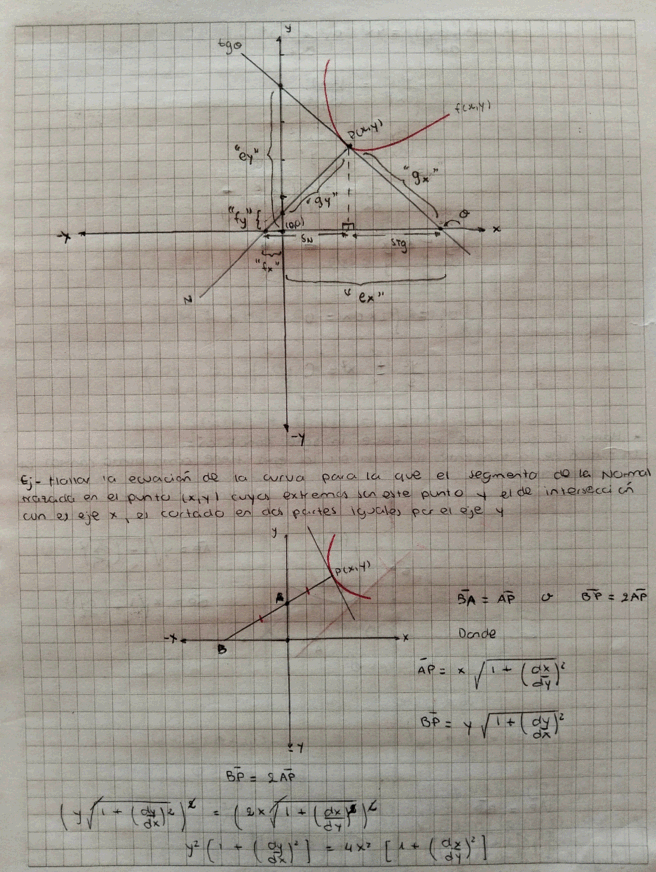 y
tgθ
f(x,y)
P(x,y)
"ey"
"gx"
"gy"
"fy"
θ
-x
x
SN
STg
"fx"
N
"ex"
-y
Ej- Hallar la ecuación de la curva para la que el segmento de la Normal
trazada en el punto (x,y) cuyos extremos son este punto y el de intersección
con el eje x, es cortado en dos partes iguales por el eje y
y
P(x,y)
A
B̄A = ĀP o B̄P = 2ĀP
-x
x
B
Donde
ĀP = x √(1 + (dx/dy)²)
B̄P = y √(1 + (dy/dx)²)
-y
B̄P = 2ĀP
(y√(1 + (dy/dx)²))² = (2x√(1 + (dx/dy)²))²
y² [1 + (dy/dx)²] = 4x² [1 + (dx/dy)²]